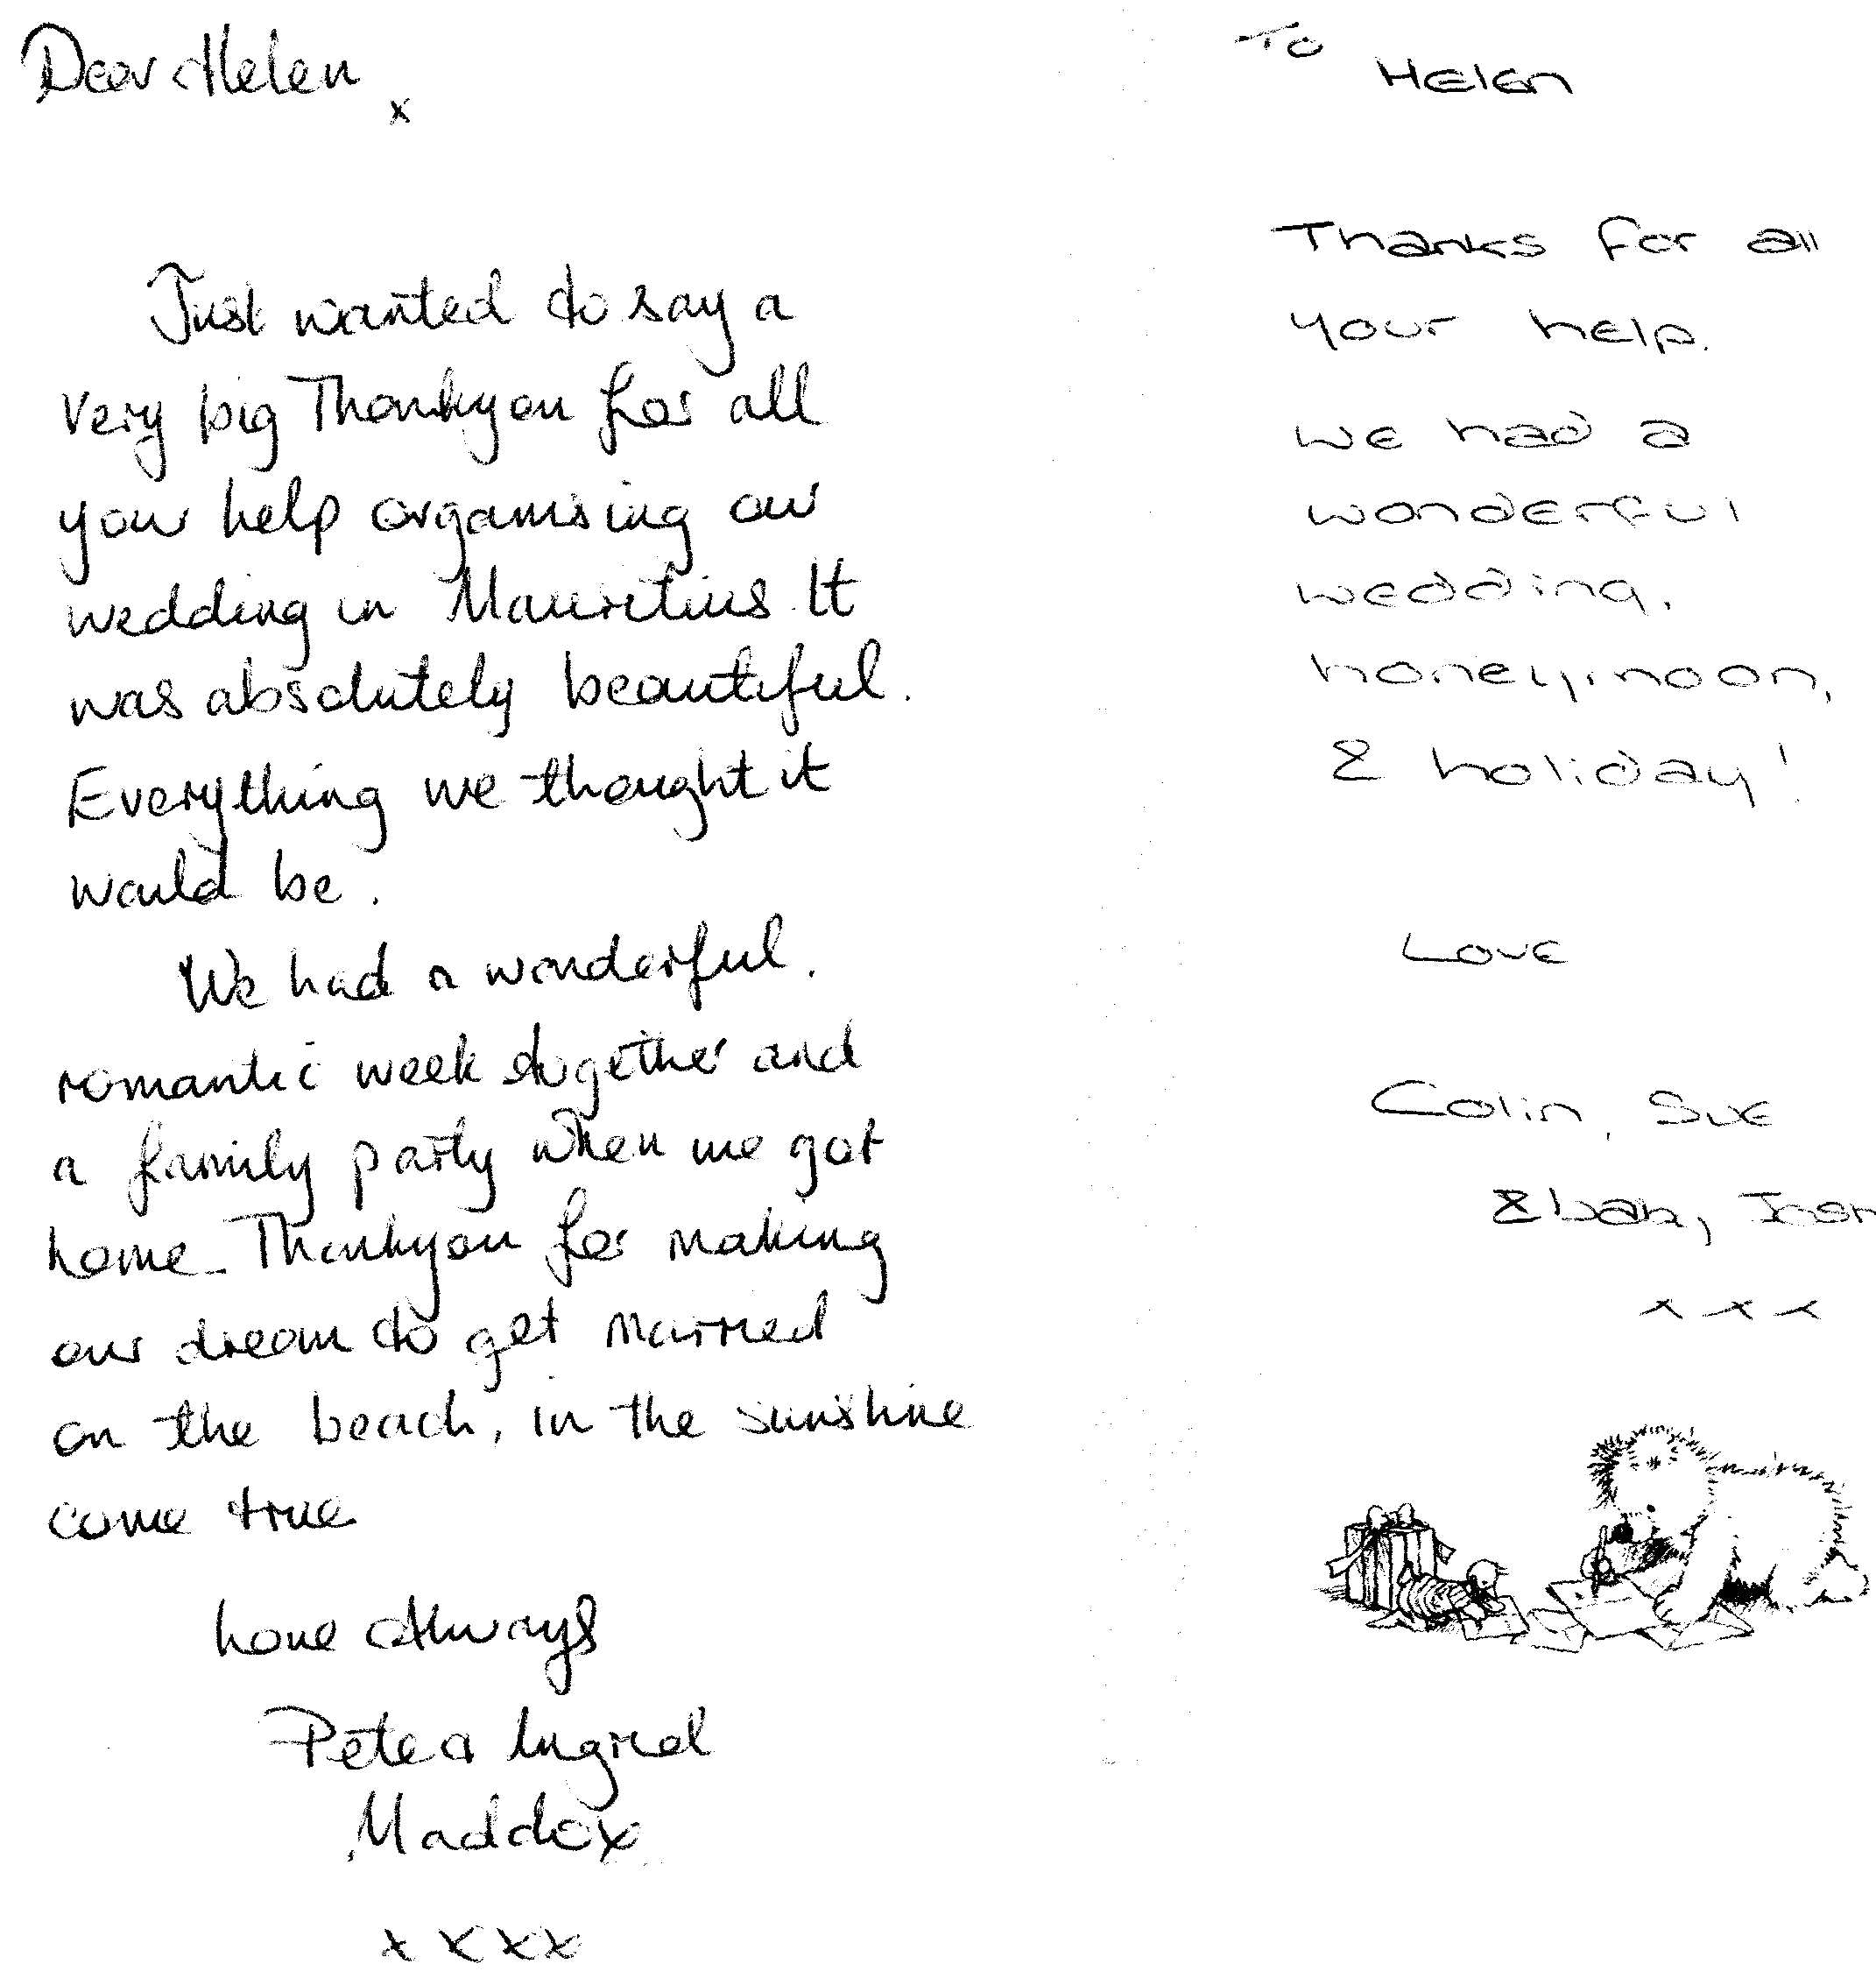 Dear Helen
x
Just wanted to say a
very big Thankyou for all
your help organising our
wedding in Mauritius. It
was absolutely beautiful.
Everything we thought it
would be.
We had a wonderful.
romantic week together and
a family party when we got
home. Thankyou for making
our dream to get married
on the beach, in the sunshine
come true
Love Always
Pete & Ingrid
Maddox
x x x x
To
Helen
Thanks for all
your help.
We had a
wonderful
wedding,
honeymoon,
& holiday!
Love
Colin, Sue
& bab, Josh
x x x